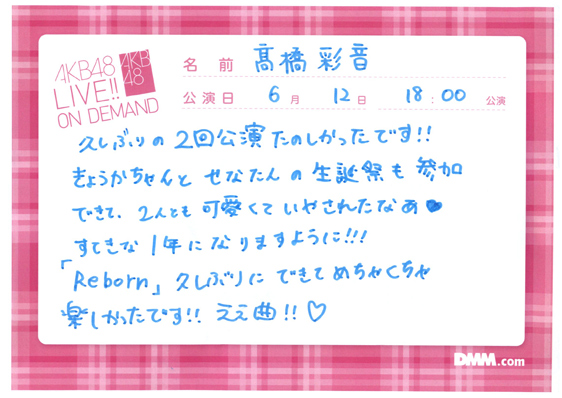 AKB48
LIVE!!
ON DEMAND
AKB
48
名前 髙橋彩音
公演日 6月 12日 18:00 公演
久しぶりの2回公演たのしかったです!!
きょうかちゃんとせなたんの生誕祭も参加
できて、2人とも可愛くていやされたなあ♥
すてきな1年になりますように!!!
「Reborn」久しぶりにできてめちゃくちゃ
楽しかったです!! ええ曲!!♡
DMM.com